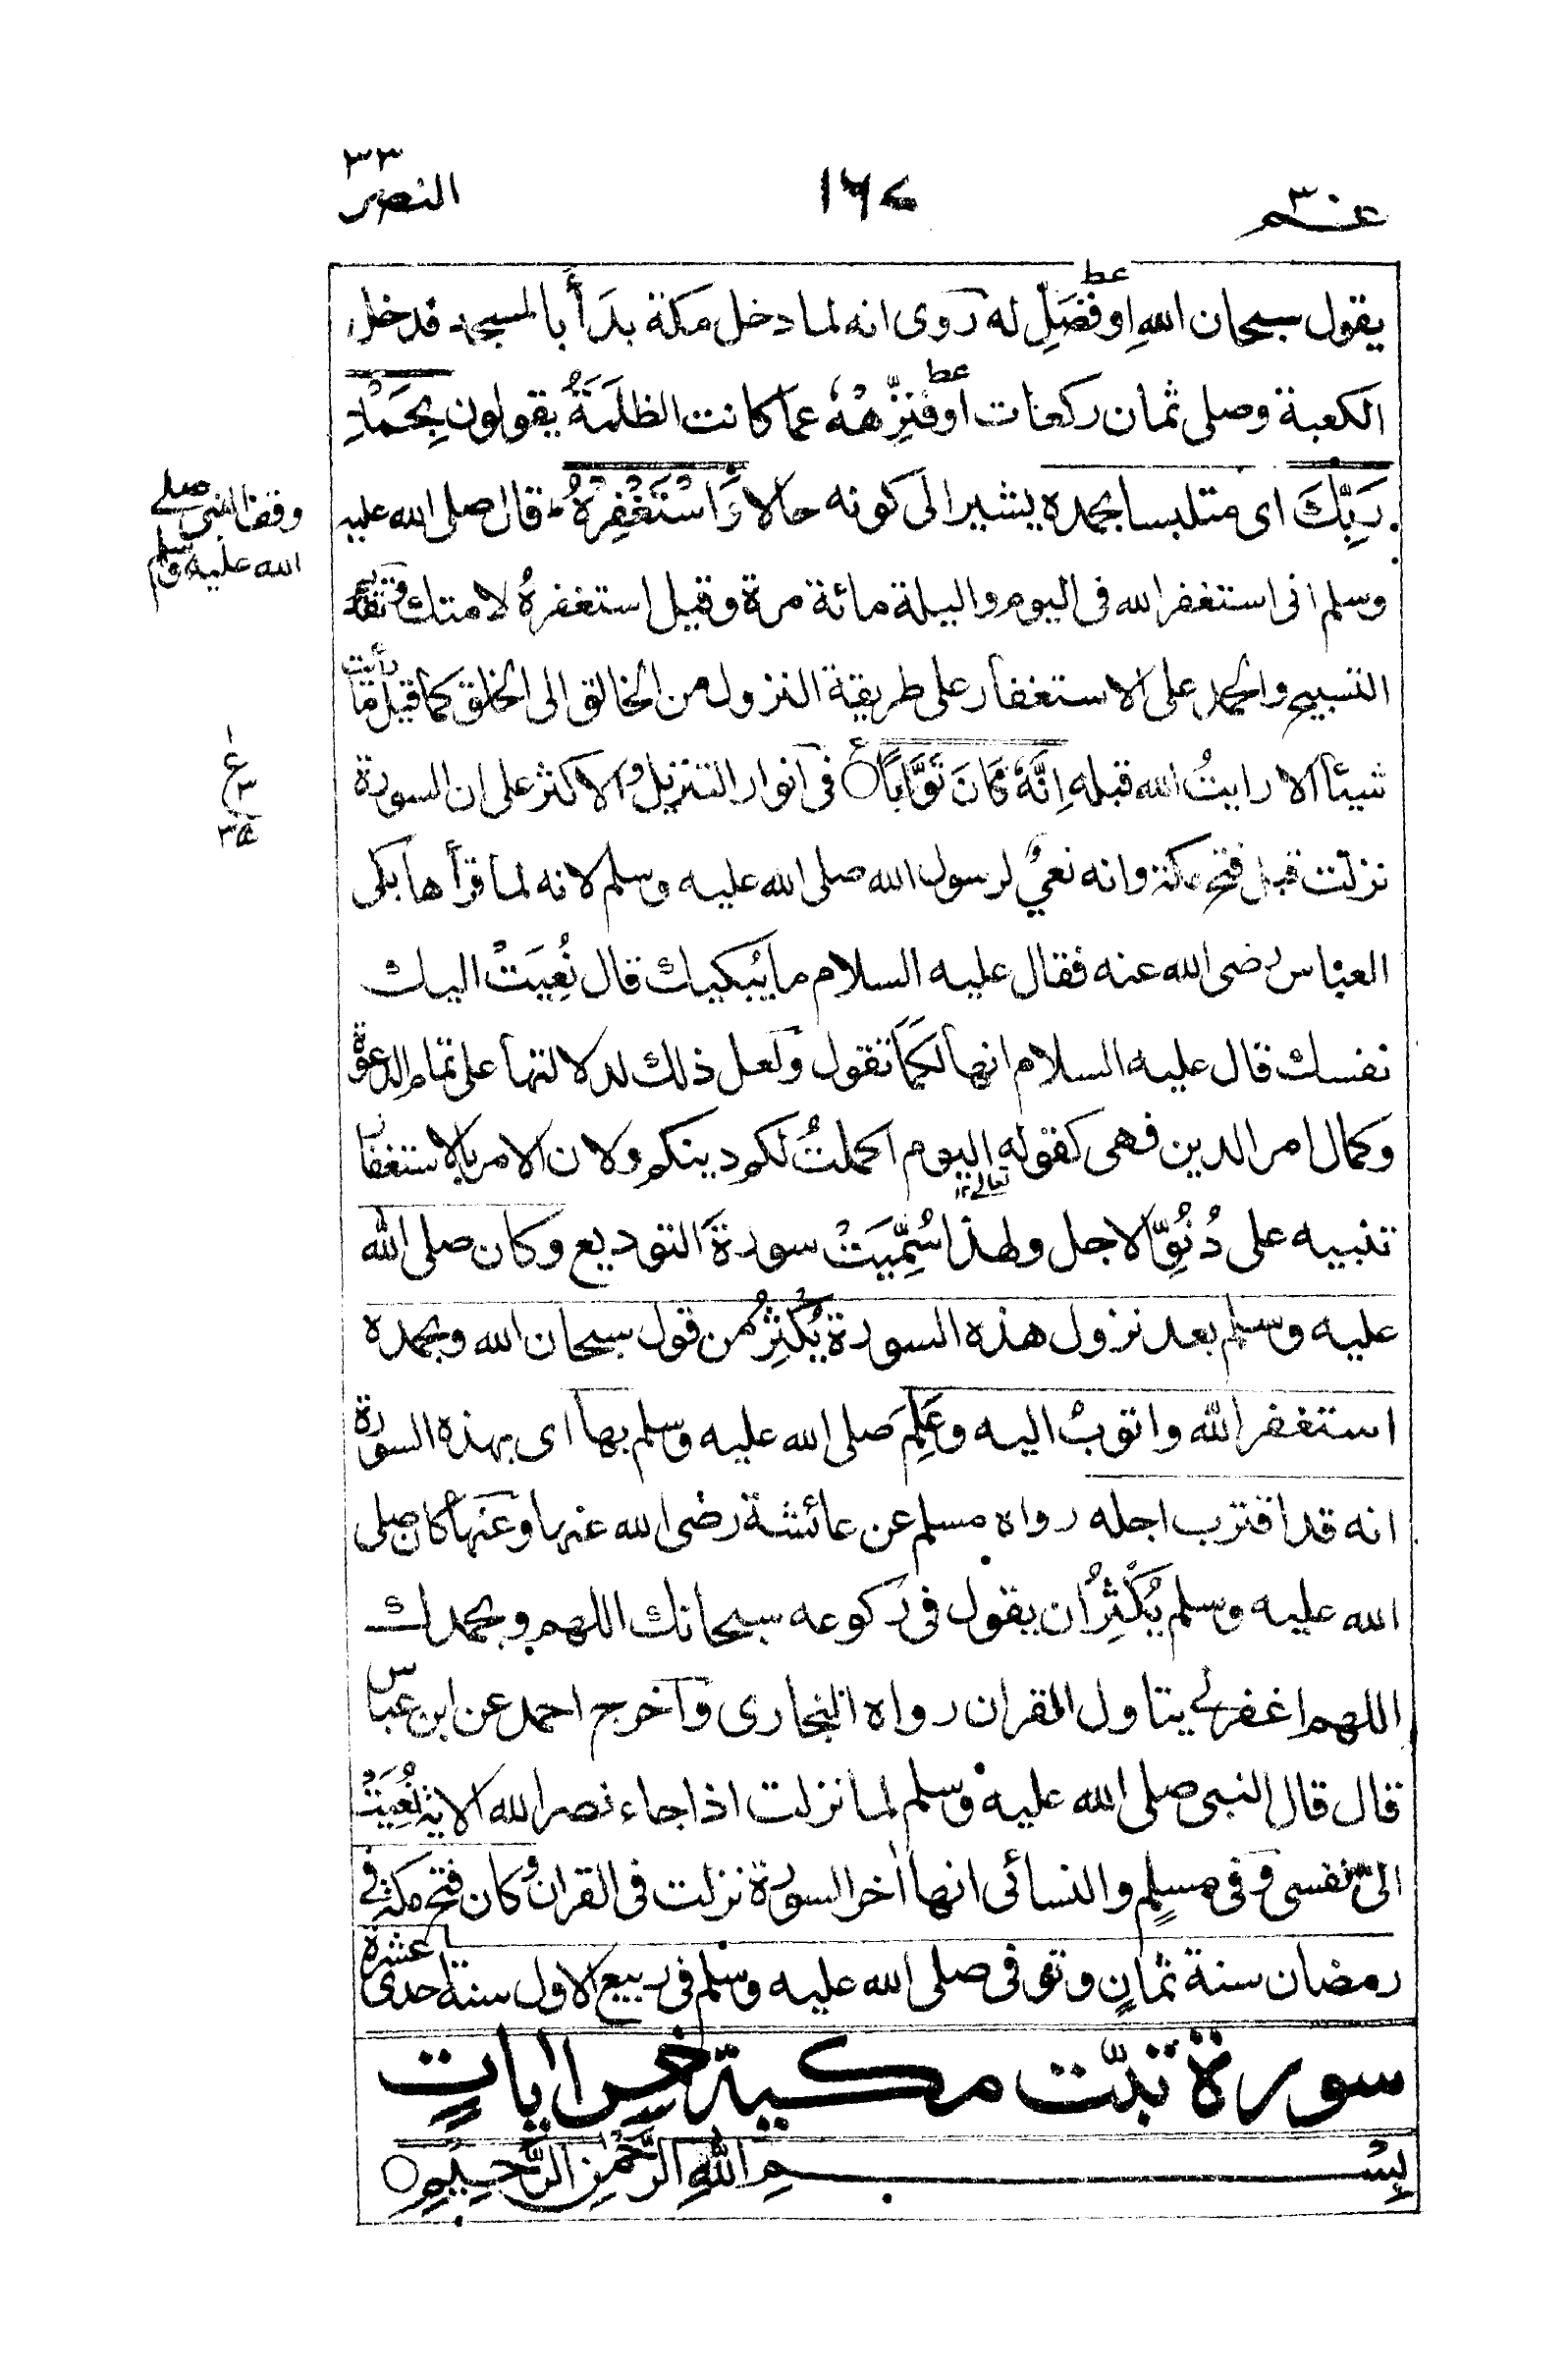 عم ٣٠
١٦٧
النصر
يقول سبحان الله او فصل له روى انه لما دخل مكة بدأ بالمسجد فدخل
الكعبة وصلى ثمان ركعات او فنزهه عما كانت الظلمة يقولون بِحَمْدِ
رَبِّكَ اى متلبسا بحمده يشير الى كونه حالا وَاسْتَغْفِرْهُ ط قال صلى الله عليه
وسلم انى استغفر الله فى اليوم والليلة مائة مرة وقيل استغفره لامتك
التسبيح والحمد على الاستغفار على طريقة النزول من الخالق الى الخلق كما قيل ما رأيت
شيئا الا رايتُ الله قبله اِنَّهٗ كَانَ تَوَّابًا ○ فى انوار التنزيل والاكثر على ان السورة
نزلت قبل فتح مكة وانه نعيٌ لرسول الله صلى الله عليه وسلم لانه لما قرأها بكى
العباس رضى الله عنه فقال عليه السلام ما يُبكيك قال نُعِيَتْ اليك
نفسك قال عليه السلام انها لكما تقول ولعل ذلك لدلالتها على تمام الدعوة
وكمال امر الدين فهى كقوله تعالى ١٢ اليوم اكملتُ لكم دينكم ولان الامر بالاستغفار
تنبيه على دُنُوِّ الاجل ولهذا سُمِّيَتْ سورةَ التوديع وكان صلى الله
عليه وسلم بعد نزول هذه السورة يُكْثِرُ من قول سبحان الله وبحمده
استغفر الله واتوب اليه وعَلِمَ صلى الله عليه وسلم بها اى بهذه السورة
انه قد اقترب اجله رواه مسلم عن عائشة رضى الله عنها وعنها كان صلى
الله عليه وسلم يُكْثِرُ ان يقول فى ركوعه سبحانك اللهم وبحمدك
اللهم اغفر لى يتاول القران رواه البخارى واخرج احمد عن ابن عباس
قال قال النبى صلى الله عليه وسلم لما نزلت اذا جاء نصر الله الاية نُعِيَتْ
الىّ نفسى وفى مسلم والنسائى انها اخر السورة نزلت فى القران وكان فتح مكة فى
رمضان سنة ثمانٍ وتوفى صلى الله عليه وسلم فى ربيع الاول سنة احدى عشرة
سورة تبّت مكية خمس اياتٍ
بِسْمِ اللهِ الرَّحْمٰنِ الرَّحِيْمِ ○
وقف النبى صلى
الله عليه وسلم
ع